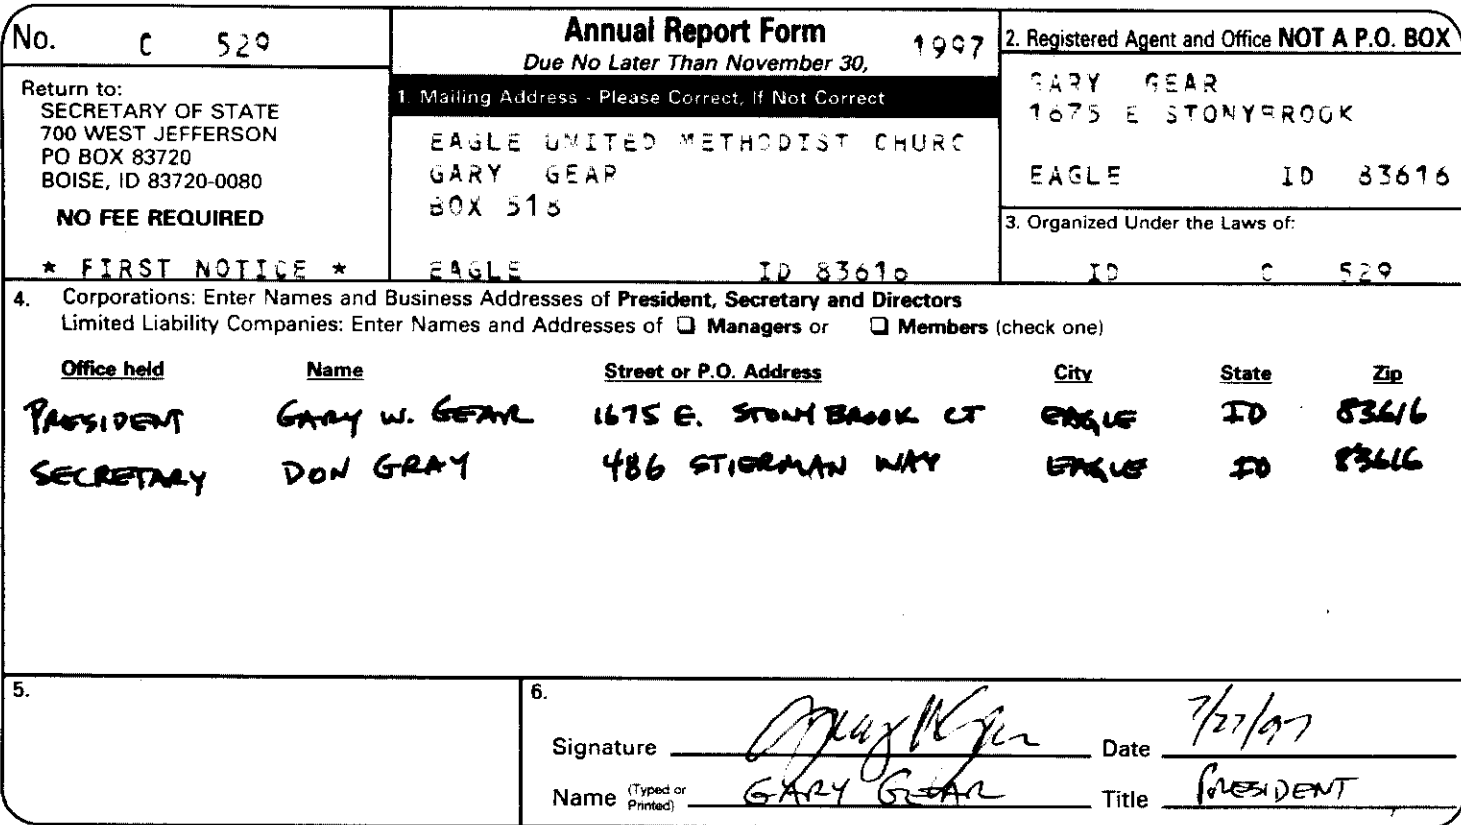 No. C 529
Return to:
SECRETARY OF STATE
700 WEST JEFFERSON
PO BOX 83720
BOISE, ID 83720-0080
NO FEE REQUIRED
* FIRST NOTICE *
Annual Report Form 1997
Due No Later Than November 30,
1. Mailing Address - Please Correct, If Not Correct
EAGLE UNITED METHODIST CHURC
GARY GEAR
BOX 518
EAGLE ID 83616
2. Registered Agent and Office NOT A P.O. BOX
GARY GEAR
1675 E STONYBROOK
EAGLE ID 83616
3. Organized Under the Laws of:
ID C 529
4. Corporations: Enter Names and Business Addresses of President, Secretary and Directors
Limited Liability Companies: Enter Names and Addresses of ❑ Managers or ❑ Members (check one)
Office held Name Street or P.O. Address City State Zip
PRESIDENT GARY W. GEAR 1675 E. STONY BROOK CT EAGLE ID 83616
SECRETARY DON GRAY 486 STIERMAN WAY EAGLE ID 83616
5.
6.
Signature Date 7/27/97
Name (Typed or Printed) GARY GEAR Title PRESIDENT